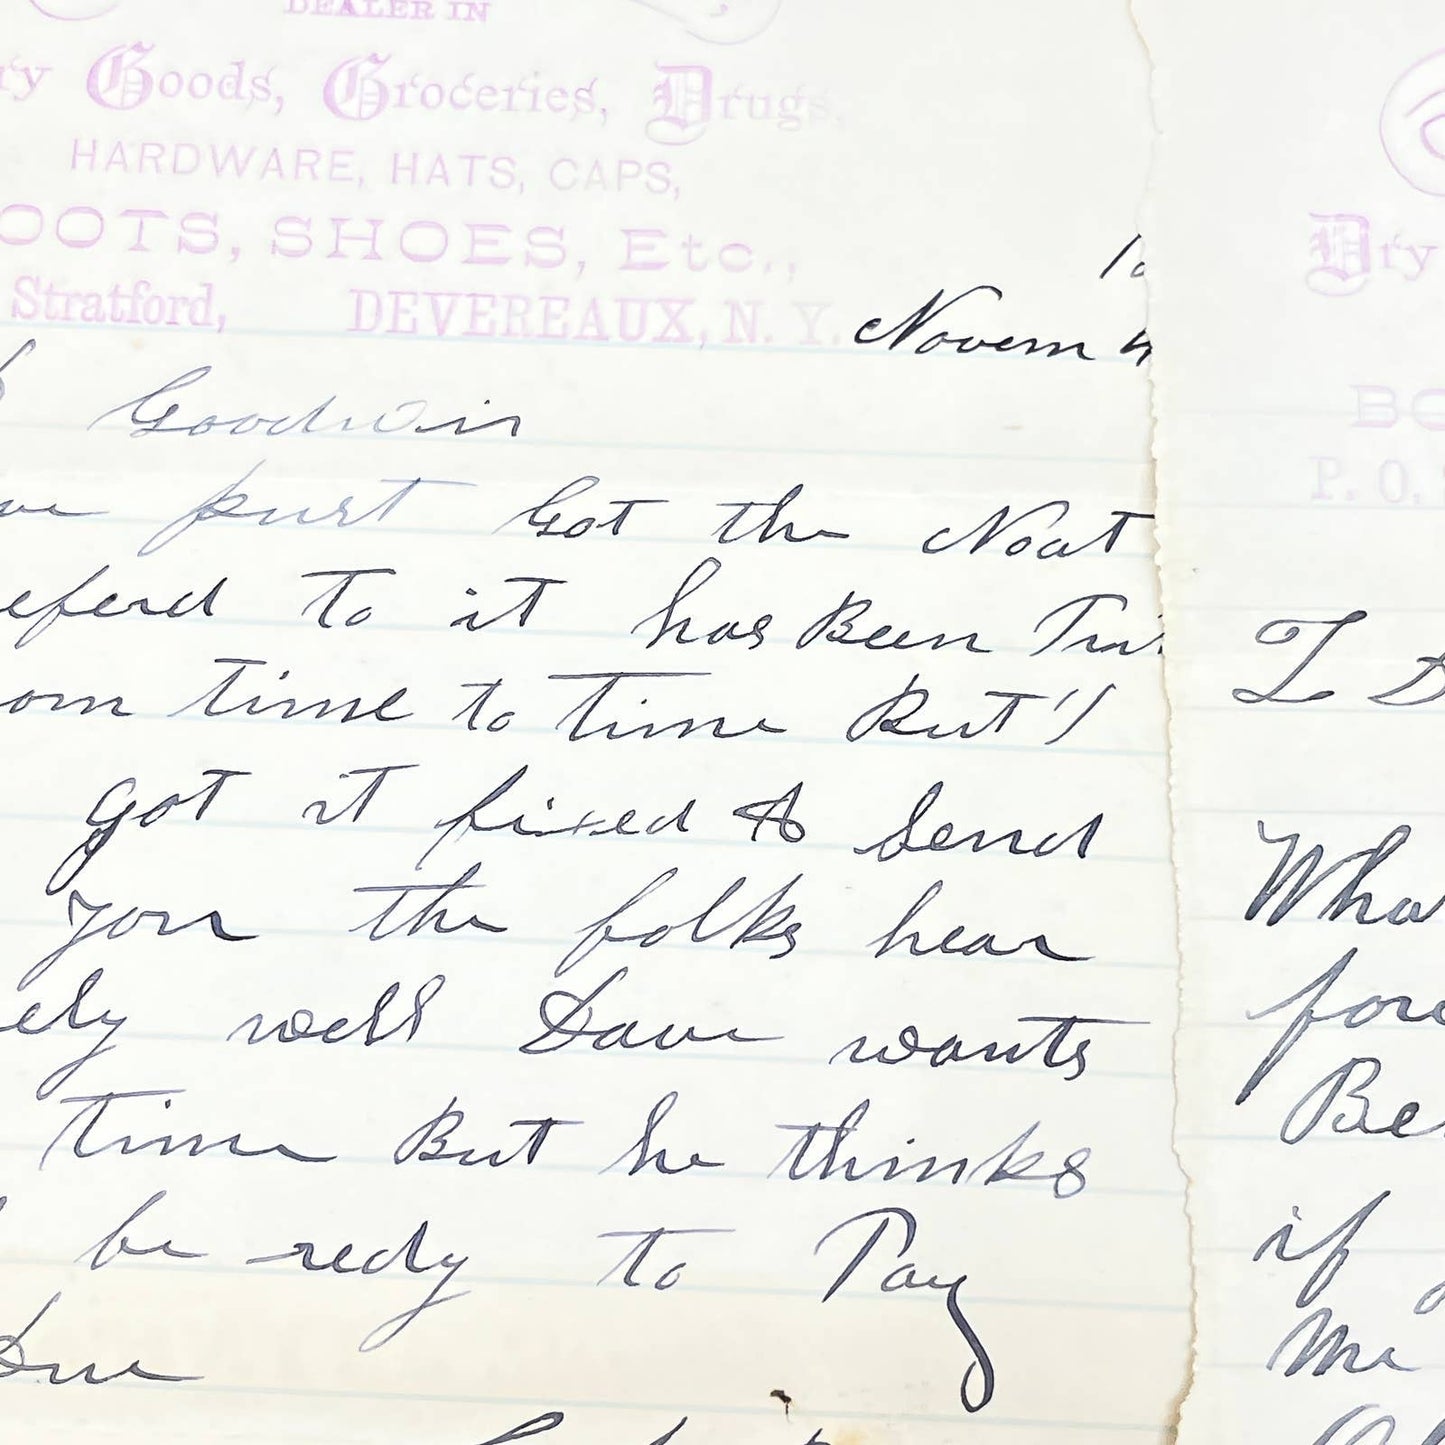 DEALER IN
ry Goods, Groceries, Drugs,
HARDWARE, HATS, CAPS,
OOTS, SHOES, Etc.,
Stratford, DEVEREAUX, N. Y.
Novem
Goodwin
Got the Noat
eferd to it has Been
om time to time But I
got it fixed & send
you the folks hear
ely well Dave wants
time But he thinks
be redy to Pay
Due
Dry
BO
P. O.
Wha
fore
Be
if
Me